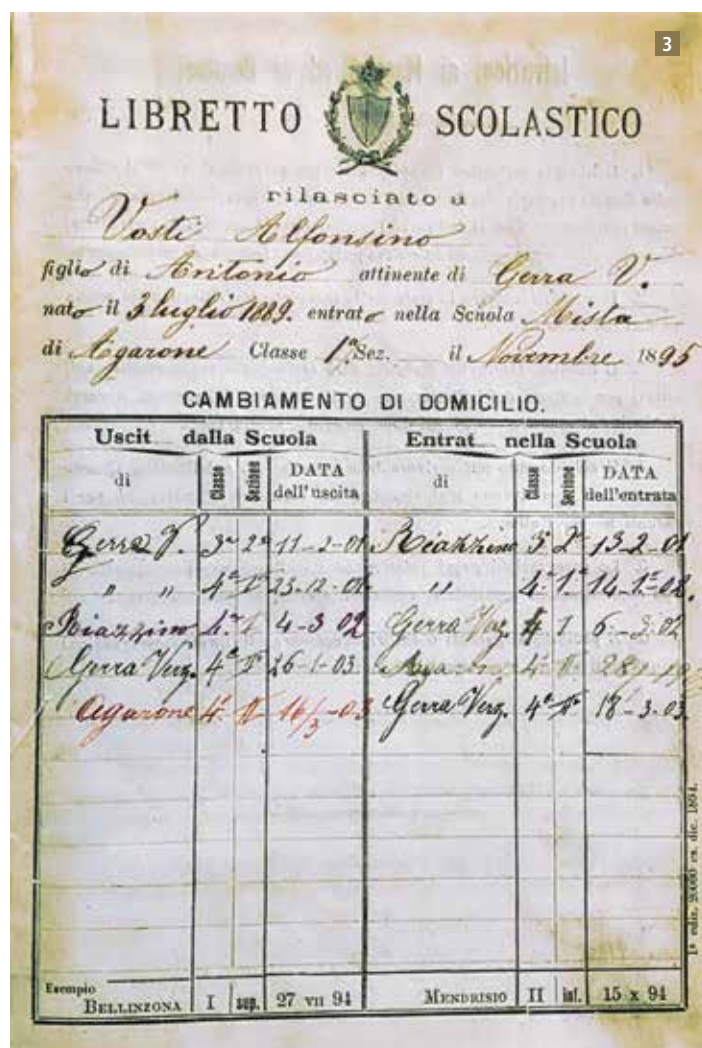 3
LIBRETTO SCOLASTICO
rilasciato a
Vosti Alfonsino
figlio di Antonio attinente di Gerra V.
nato il 3 luglio 1889. entrato nella Scuola Mista
di Agarone Classe 1ª Sez. il Novembre 1895
CAMBIAMENTO DI DOMICILIO.
Uscit dalla Scuola Entrat nella Scuola
di Classe Sezione DATA dell'uscita di Classe Sezione DATA dell'entrata
Gerra V. 3ª 2ª 11-2-01 Riazzino 3ª 2ª 13-2-01
" " 4ª 1ª 23-12-01 " 4ª 1ª 14-1-02.
Riazzino 4ª I 4-3 02 Gerra Verz. 4 I 6-3-02
Gerra Verz. 4ª IIª 26-1-03 4ª II
Agarone 4ª II 16/3-03 Gerra Verz. 4ª IIª 18-3-03.
Esempio
BELLINZONA I sup. 27 VII 94 MENDRISIO II inf. 15 X 94
1ª ediz. 20000 es. dic. 1894.